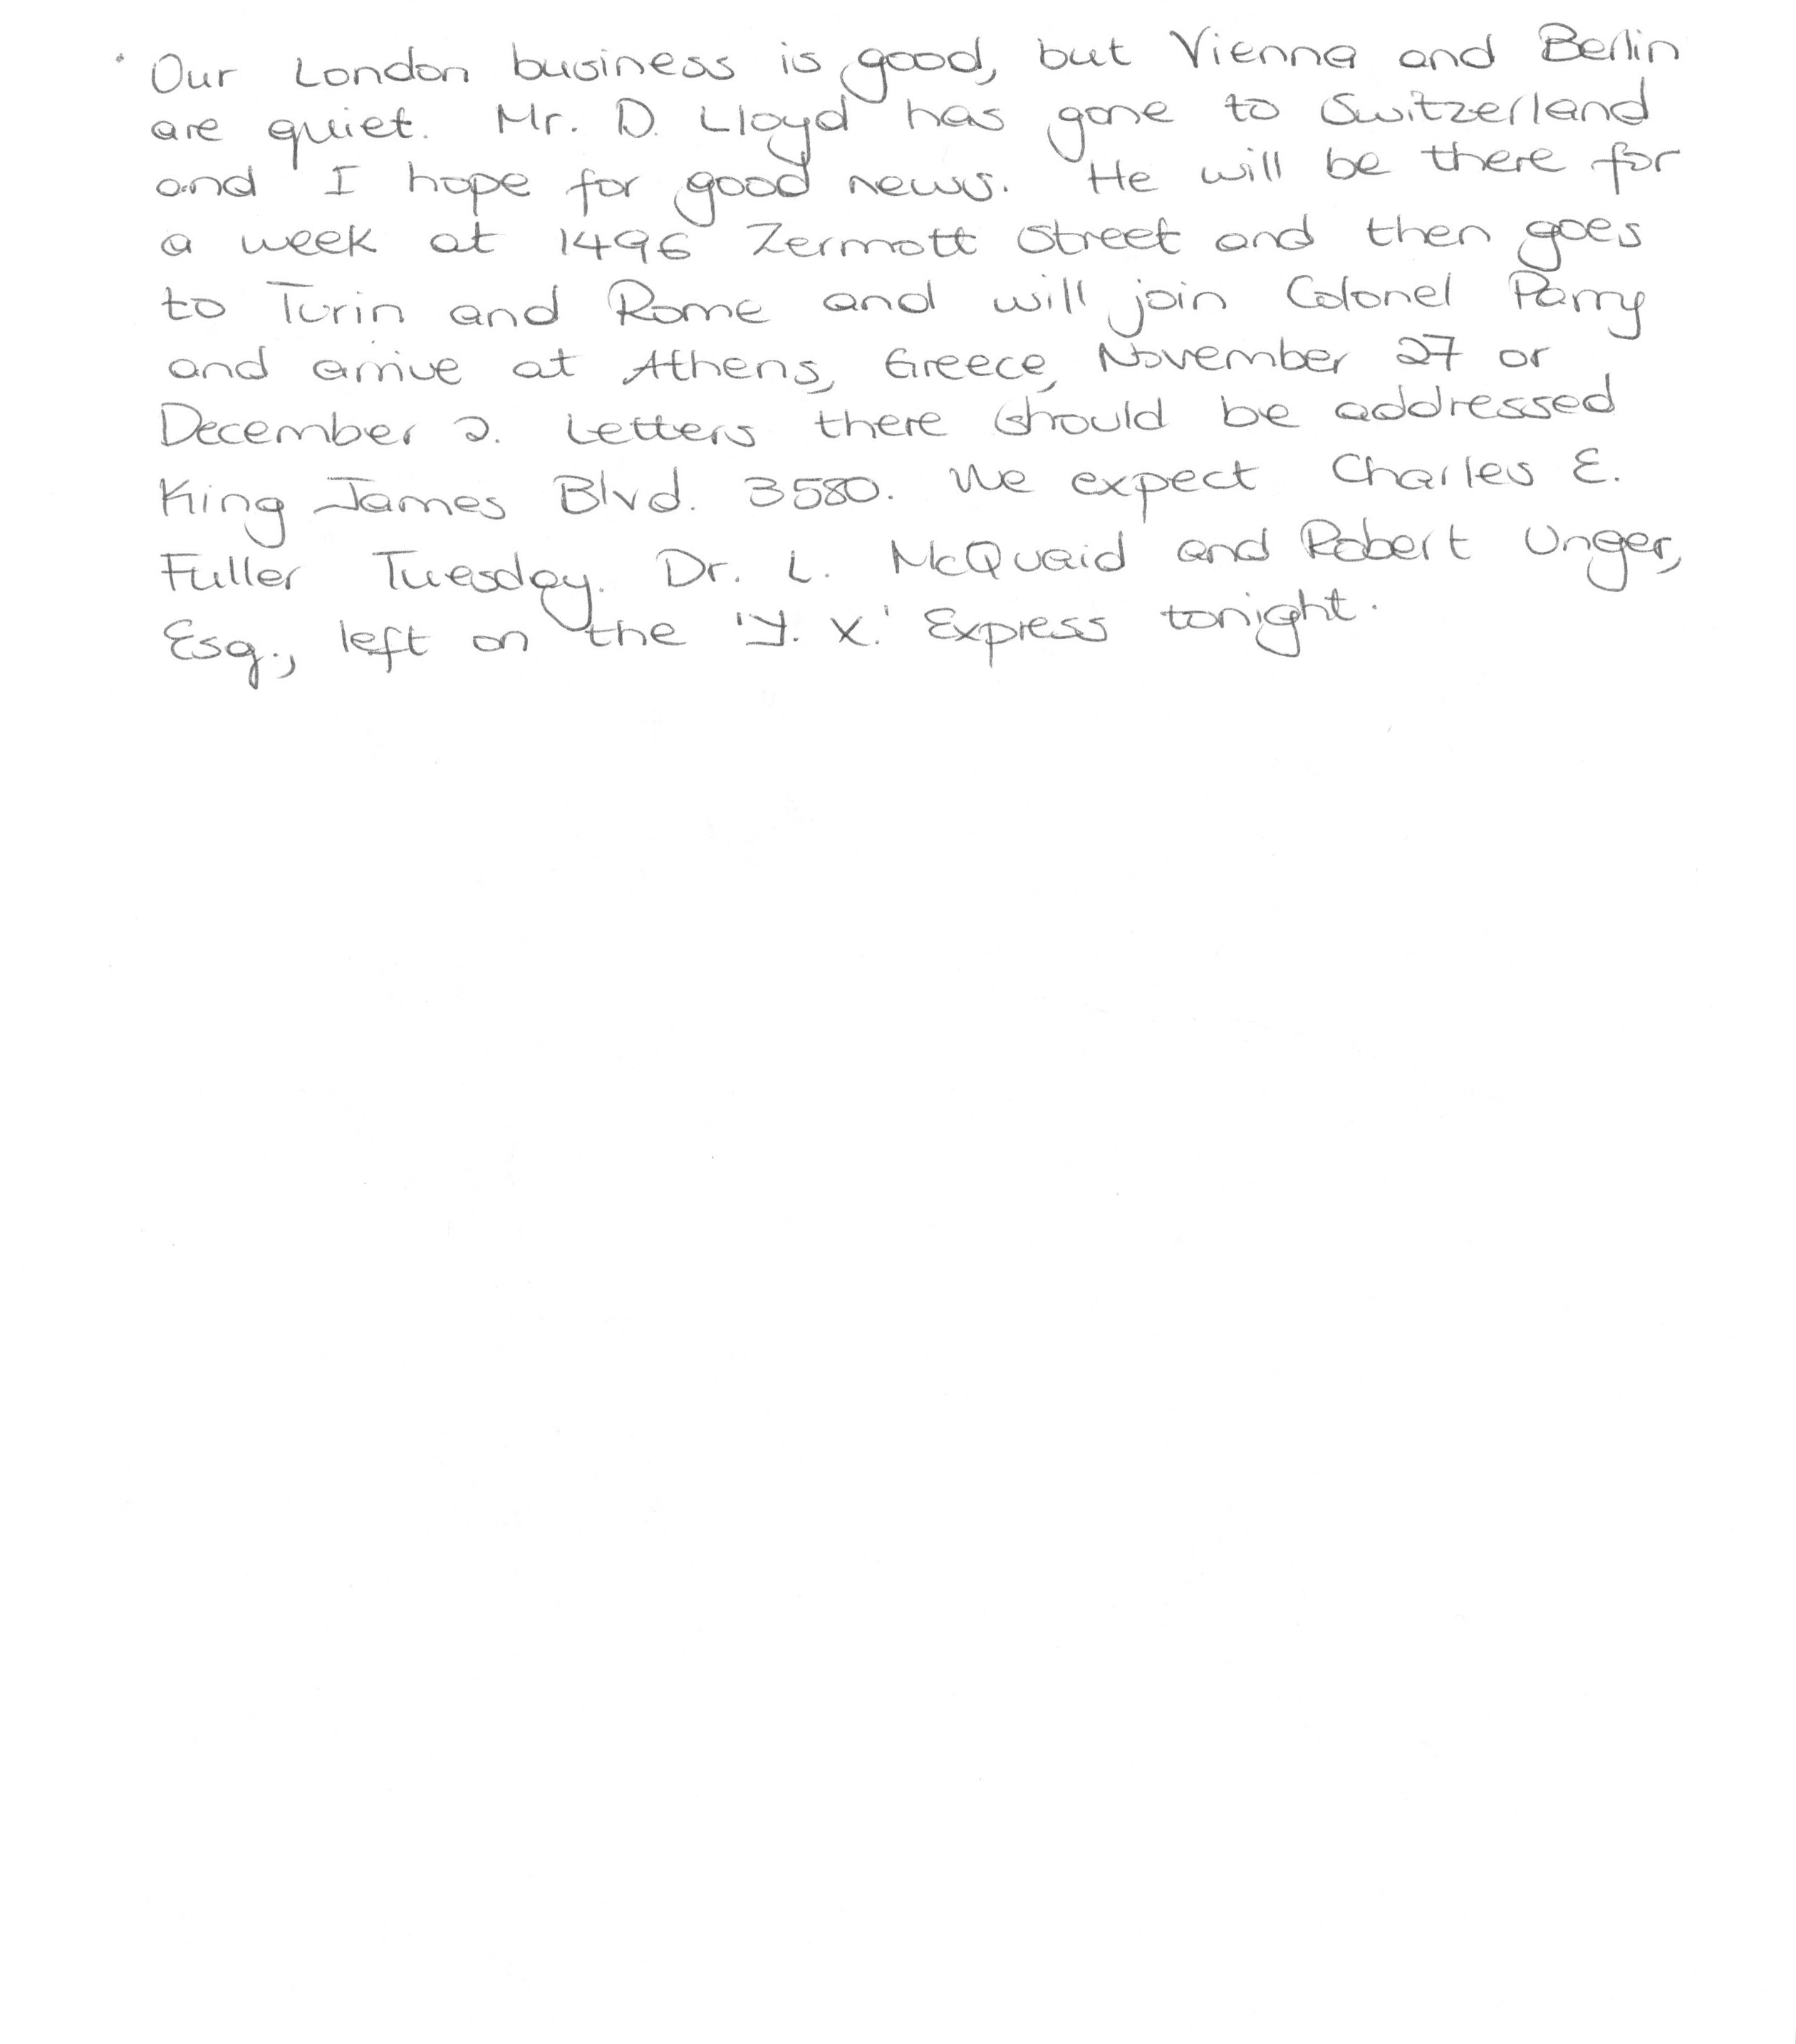 Our London business is good, but Vienna and Berlin
are quiet. Mr. D. Lloyd has gone to Switzerland
and I hope for good news. He will be there for
a week at 1496 Zermott Street and then goes
to Turin and Rome and will join Colonel Parry
and arrive at Athens, Greece, November 27 or
December 2. Letters there should be addressed
King James Blvd. 3580. We expect Charles E.
Fuller Tuesday. Dr. L. McQuaid and Robert Unger,
Esq., left on the 'Y. X.' Express tonight.